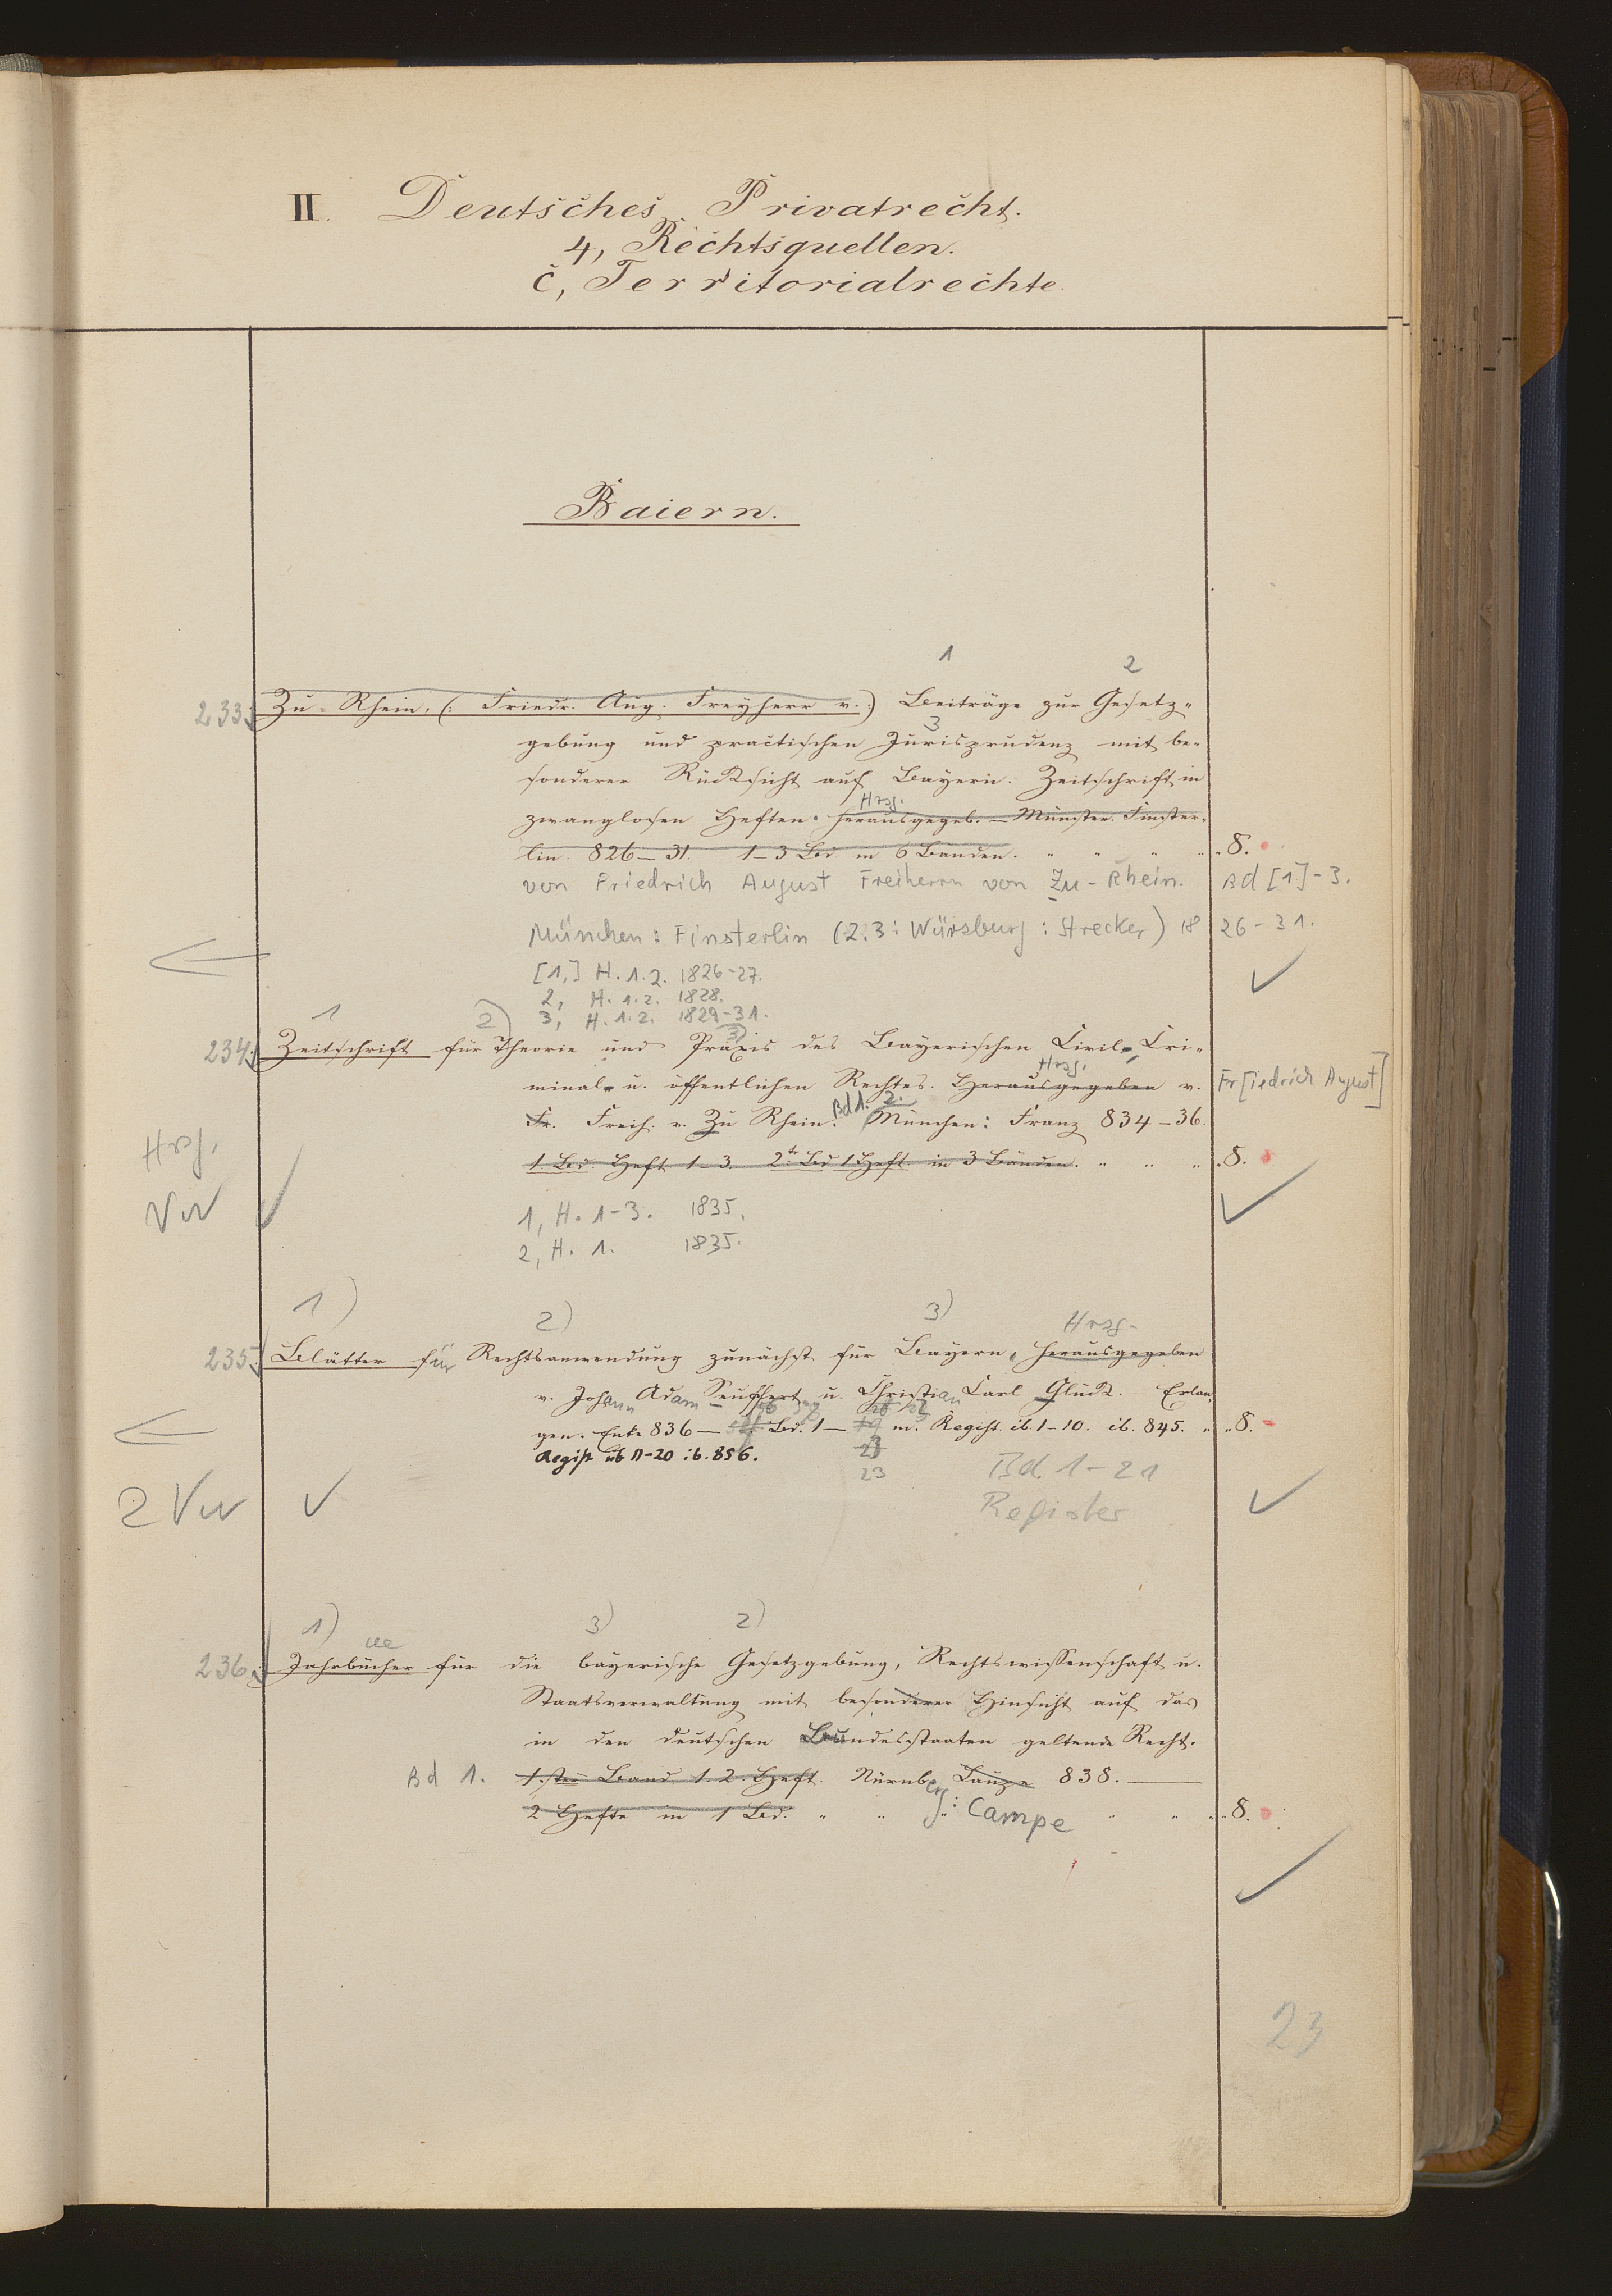 II. Deutsches Privatrecht.
4, Rechtsquellen.
c, Territorialrechte.
Baiern.
1 2
233. Zu-Rhein, (: Friedr. Aug. Freyherr v. :) Beiträge zur Gesetz-
3
gebung und practischen Jurisprudenz mit be-
sonderer Rücksicht auf Bayern. Zeitschrift in
Hrsg.
zwanglosen Heften. herausgegeb. – Münster. Finster-
lin. 826–31. 1–3 Bd. in 6 Bänden. " " " " 8.
von Friedrich August Freiherrn von Zu-Rhein. Bd [1]-3.
München: Finsterlin (2.3: Würzburg: Strecker) 18 26-31.
[1,] H. 1.2. 1826-27.
2, H. 1.2. 1828.
3, H. 1.2. 1829-31.
1 2) 3)
234. Zeitschrift für Theorie und Praxis des Bayerischen Civil-, Cri-
Hrsg.
minal- u. öffentlichen Rechtes. Herausgegeben v. Fr[iedrich August]
Bd 1. 2.
Fr. Freih. v. Zu Rhein. München: Franz 834–36.
Hrsg.
1. Bd. Heft 1–3. 2tr Bd 1 Heft. in 3 Bänden. " " " 8.
Vw
1, H. 1-3. 1835.
2, H. 1. 1835.
1) 2) 3) Hrsg.
235. Blätter für Rechtsanwendung zunächst für Bayern, herausgegeben
v. Johann Adam Seuffert u. Christian Carl Glück. Erlan-
gen. Enke 836– Bd. 1– m. Regist. ib. 1–10. ib. 845. " " 8.
Regist üb 11-20 ib. 856.
23
Bd. 1-21
2 Vw
Register
1) 3) 2)
ue
236. Jahrbücher für die bayerische Gesetzgebung, Rechtswissenschaft u.
Staatsverwaltung mit besonderer Hinsicht auf das
in den deutschen Bundesstaaten geltende Recht.
Bd 1. 1.sten Band, 1. 2. Heft. Nürnberg: 838. –
2 Hefte in 1 Bd. " " Campe " " " 8.
23